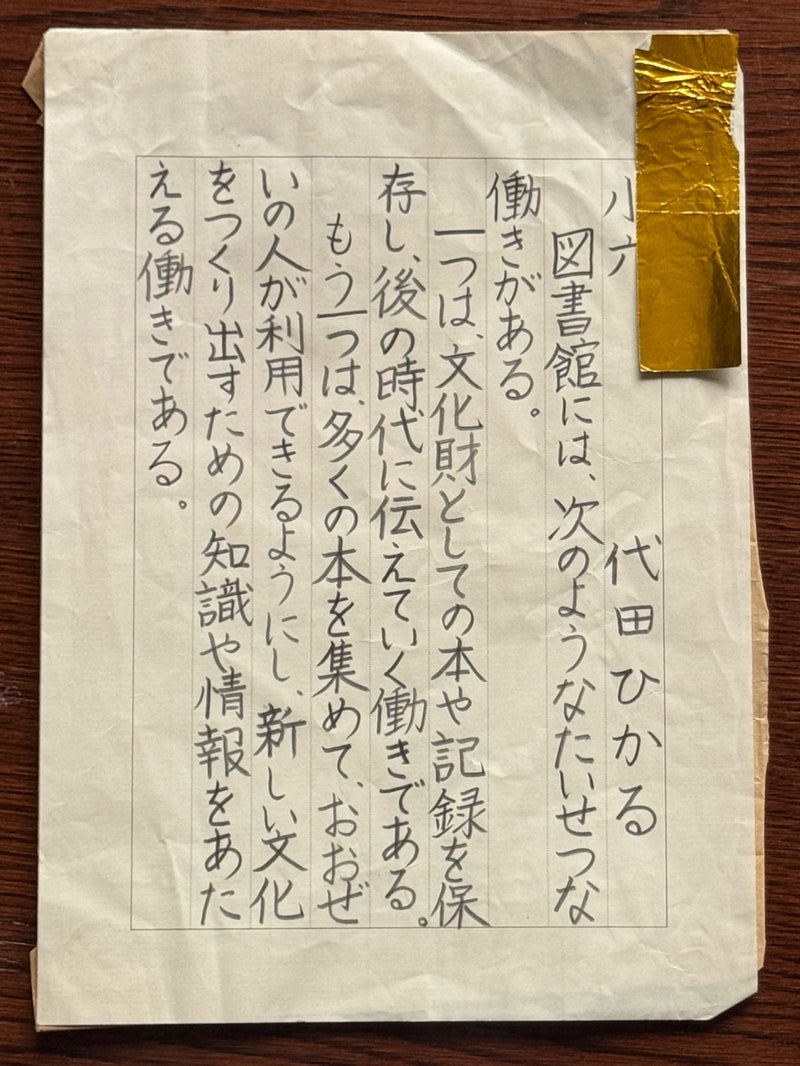 小六 代田ひかる
図書館には、次のようなたいせつな
働きがある。
一つは、文化財としての本や記録を保
存し、後の時代に伝えていく働きである。
もう一つは、多くの本を集めて、おおぜ
いの人が利用できるようにし、新しい文化
をつくり出すための知識や情報をあた
える働きである。